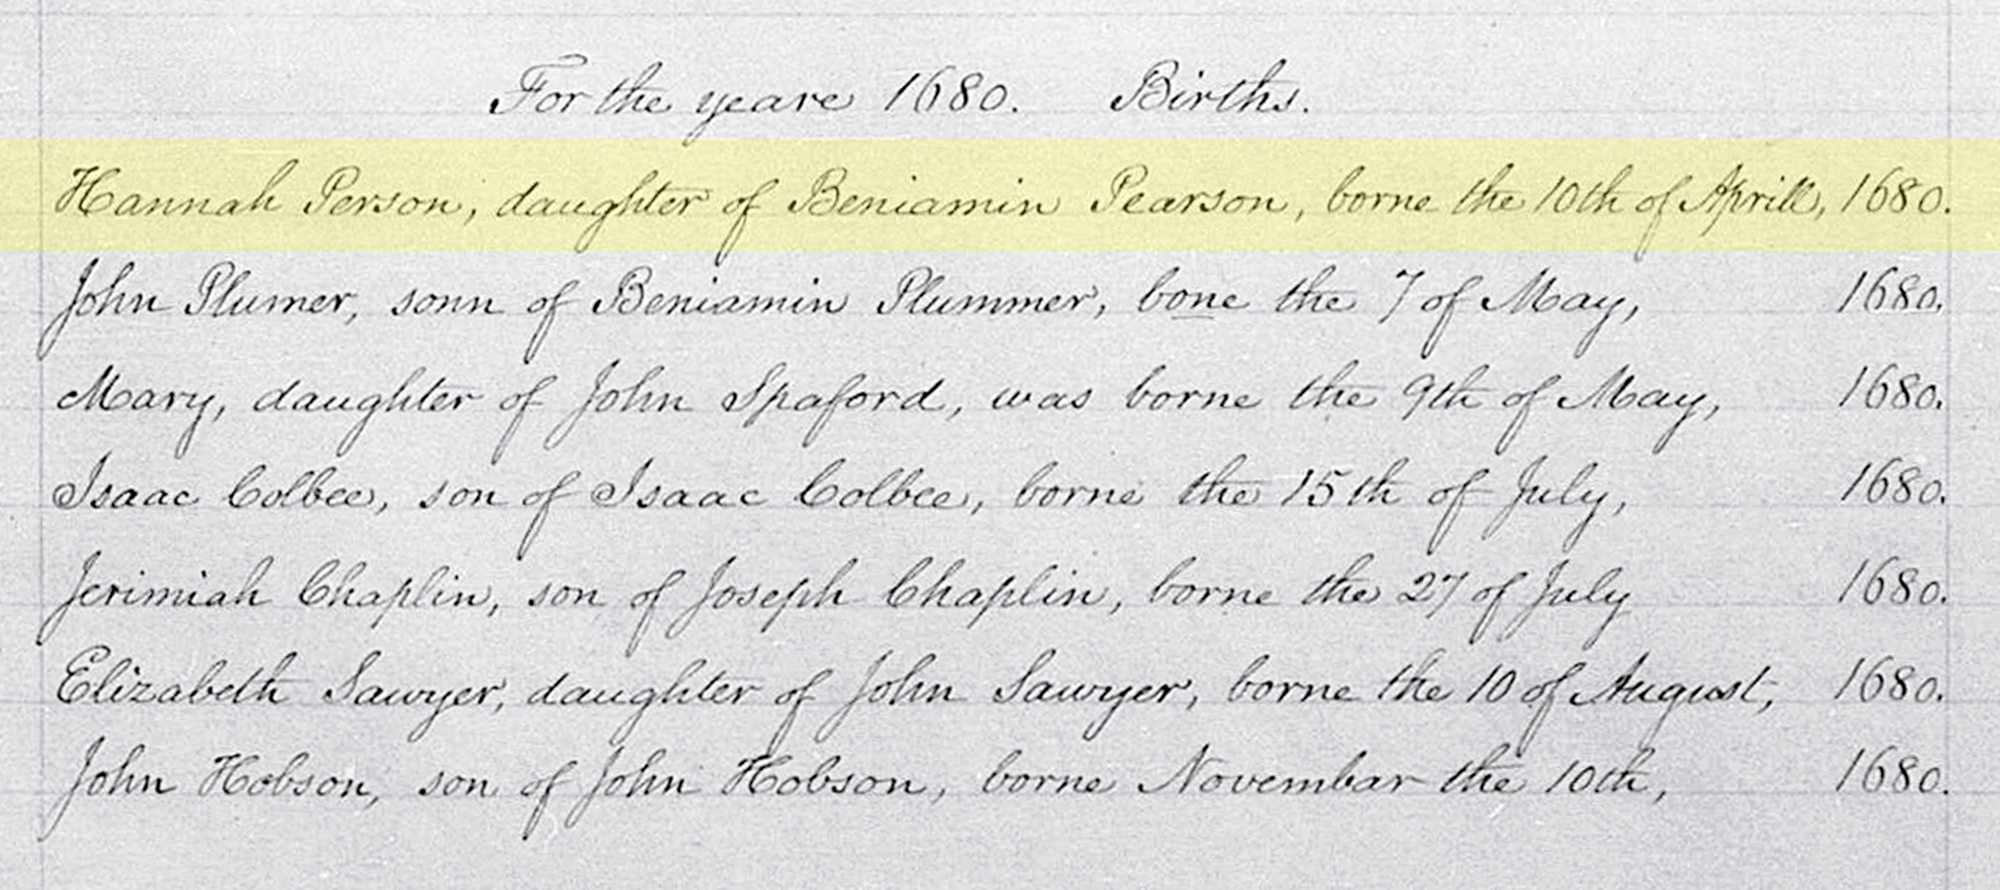 For the yeare 1680. Births.
Hannah Person, daughter of Beniamin Pearson, borne the 10th of Aprill, 1680.
John Plumer, sonn of Beniamin Plummer, bone the 7 of May, 1680.
Mary, daughter of John Spaford, was borne the 9th of May, 1680.
Isaac Colbee, son of Isaac Colbee, borne the 15th of July, 1680.
Jerimiah Chaplin, son of Joseph Chaplin, borne the 27 of July 1680.
Elizabeth Sawyer, daughter of John Sawyer, borne the 10 of August, 1680.
John Hobson, son of John Hobson, borne Novembar the 10th, 1680.